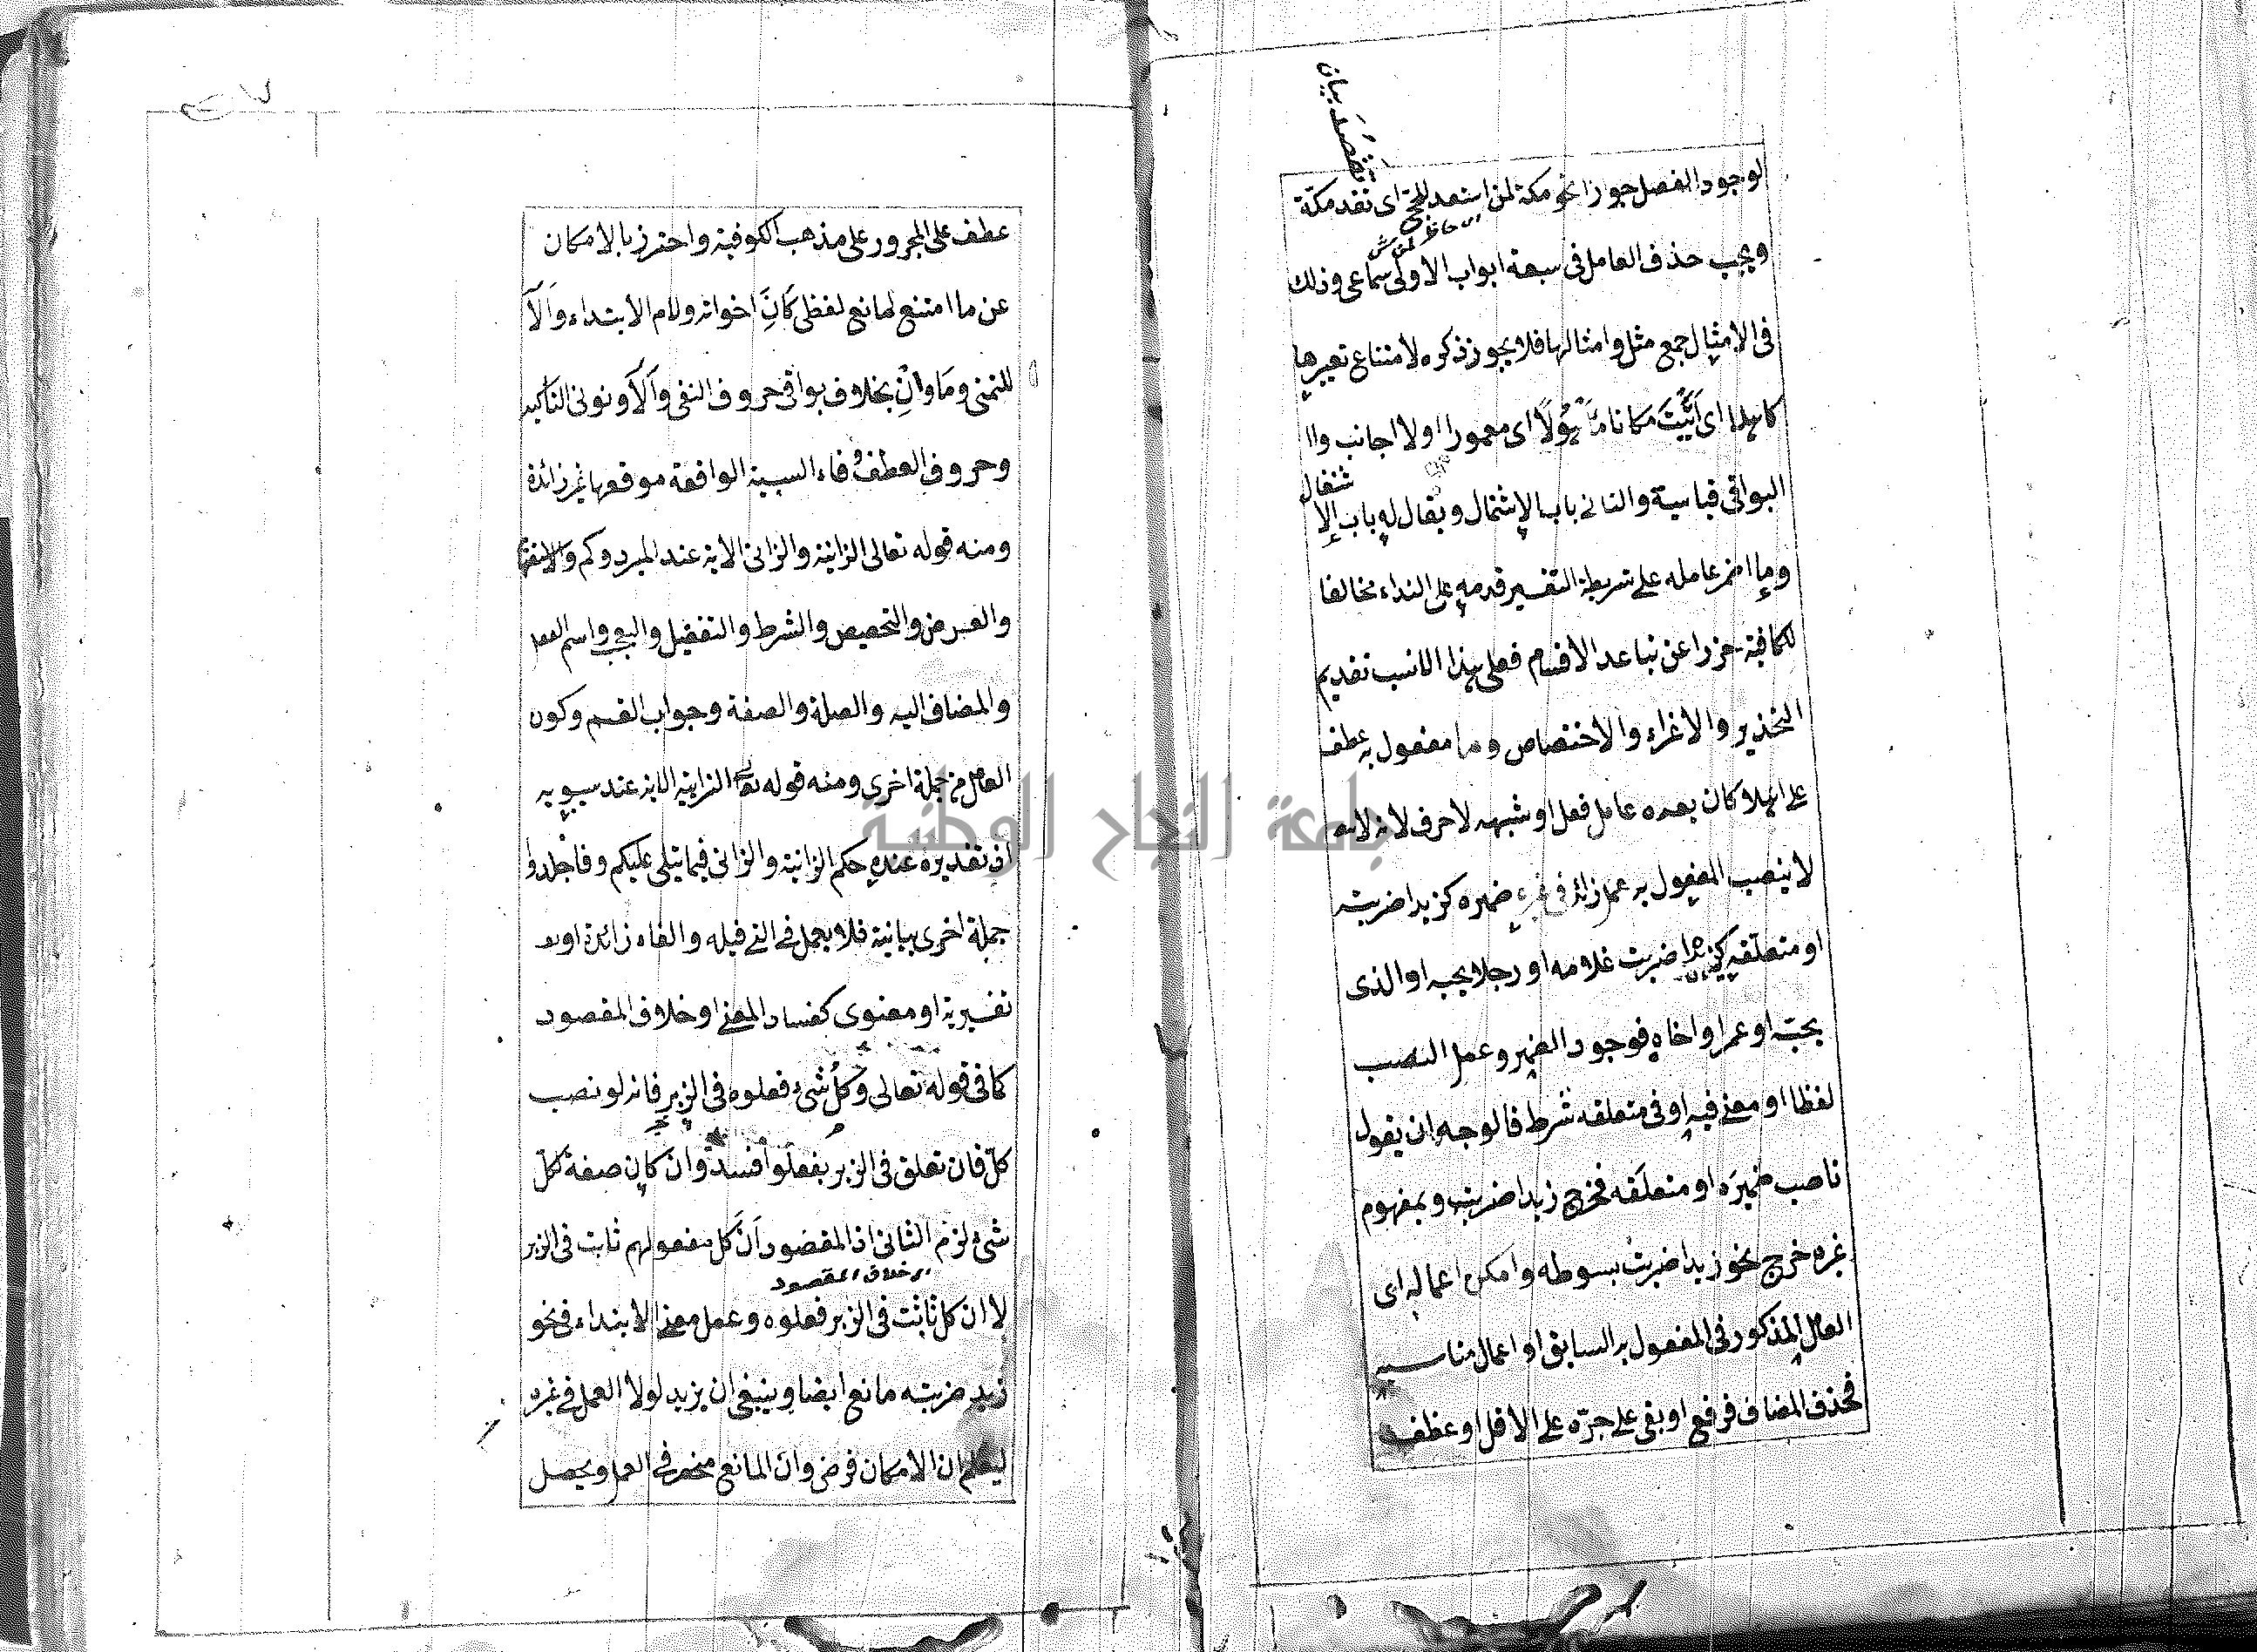 تقصد بيان
لوجود الفصل جوزا نحو مكة لمن استعد للحج اى تقصد مكة
ويجب حذف العامل فى سبعة ابواب الاولى سماعى وذلك
فى الامثال جمع مثل وامثالها فلا يجوز ذكره لامتناع تغييرها
كاهلا اى اتيت مكانا مأهولا اى معمورا اولا اجانب وال
البواقى قياسية والثانى باب الاشتمال ويقال له باب الا
شتغال
وما اضمر عامله على شريطة التفسير قدمه على النداء مخالفا
للكافية حزرا عن تباعد الاقسام فعلى هذا الانسب تقديم
التحذير والاغراء والاختصاص وما مفعول به عطف
على اهلا كان بعده عامل فعل او شبهه لا حرف لانه
لا ينصب المفعول به عمل زائد فى ضميره كزيدا ضربته
او متعلقه كزيدا ضربت غلامه او رجلا يحبه او الذى
يحبه او عمرا واخاه فوجود الضمير وعمل النصب
لفظا او معنى فيه او فى متعلقه شرط فالوجه ان يقول
ناصب ضميره او متعلقه فخرج زيدا ضربت وبمفهوم
غيره خرج نحو زيدا ضربت بسوطه وامكن اعماله اى
العامل المذكور فى المفعول به السابق او اعمال مناسبه
فحذف المضاف فرفع او بقى على جره على الاقل او عطف
عطف على المجرور على مذهب الكوفية واحترز بالامكان
عن ما امتنع لمانع لفظى كان اخواته ولام الابتداء والا
للتمنى وما وان بخلاف بواقى حروف النفى والا ونونى التأكيد
وحروف العطف وفاء السببية الواقعة موقعها غير زائدة
ومنه قوله تعالى الزانية والزانى الاية عند المبرد وكم والاستفها
والعرض والتحضيض والشرط والتفضيل والتعجب واسم الفعل
والمضاف اليه والصلة والصفة وجواب القسم وكون
العامل من جملة اخرى ومنه قوله تعالى الزانية الاية عند سيبويه
اذ تقديره عنده حكم الزانية والزانى فيما يتلى عليكم وفاجلدوا
جملة اخرى بيانية فلا يعمل فى التى قبله والفاء زائدة او
تفسيرية او معنوى كفساد المعنى او خلاف المقصود
كما فى قوله تعالى وكل شىء فعلوه فى الزبر فانه لو نصب
كل فان تعلق فى الزبر بفعلوا فسد وان كان صفة لكل
شىء لزم الثانى اذ المقصود ان كل مفعولهم ثابت فى الزبر
اى خلاف المقصود
لا ان كل ثابت فى الزبر فعلوه وعمل معنى الابتداء فى نحو
زيد ضربته مانع ايضا وينبغى ان يزيد لولا العمل فى غيره
ليعلم ان الامكان فرضى وان المانع منحصر فى العمل ويحصل
جامعة النجاح الوطنية